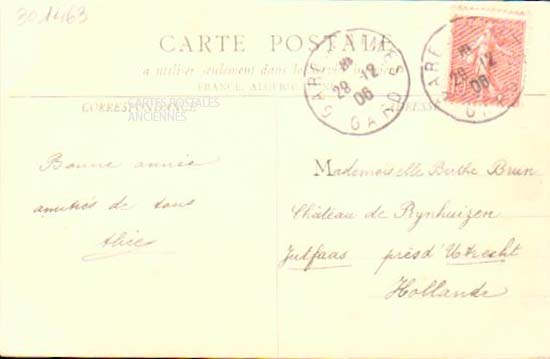 301463
CARTE POSTALE
a utiliser seulement dans le
FRANCE, ALGÉRIE
CORRESPONDANCE
CARTES POSTALES
ANCIENNES
GARE
28 12
06
GARD
GARE
28 12
06
Bonne année
amitiés de tous
Alice
Mademoiselle Berthe Brun
Château de Rynhuizen
Jutfaas près d'Utrecht
Hollande